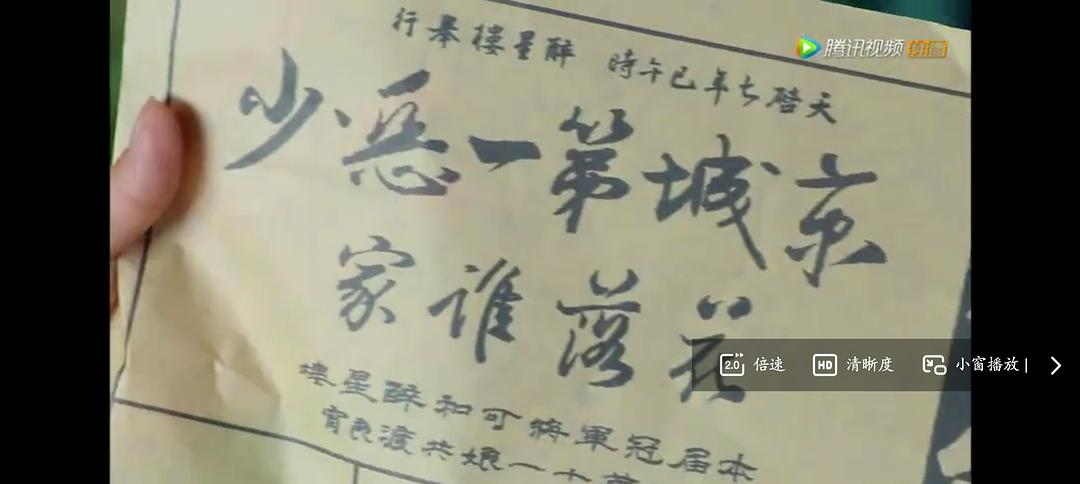 腾讯视频
天啓七年巳午時 醉星樓舉行
京城第一恶少
花落誰家
2.0 倍速 HD 清晰度 小窗播放 |
本届冠軍將可和醉星樓
十一娘共渡良宵